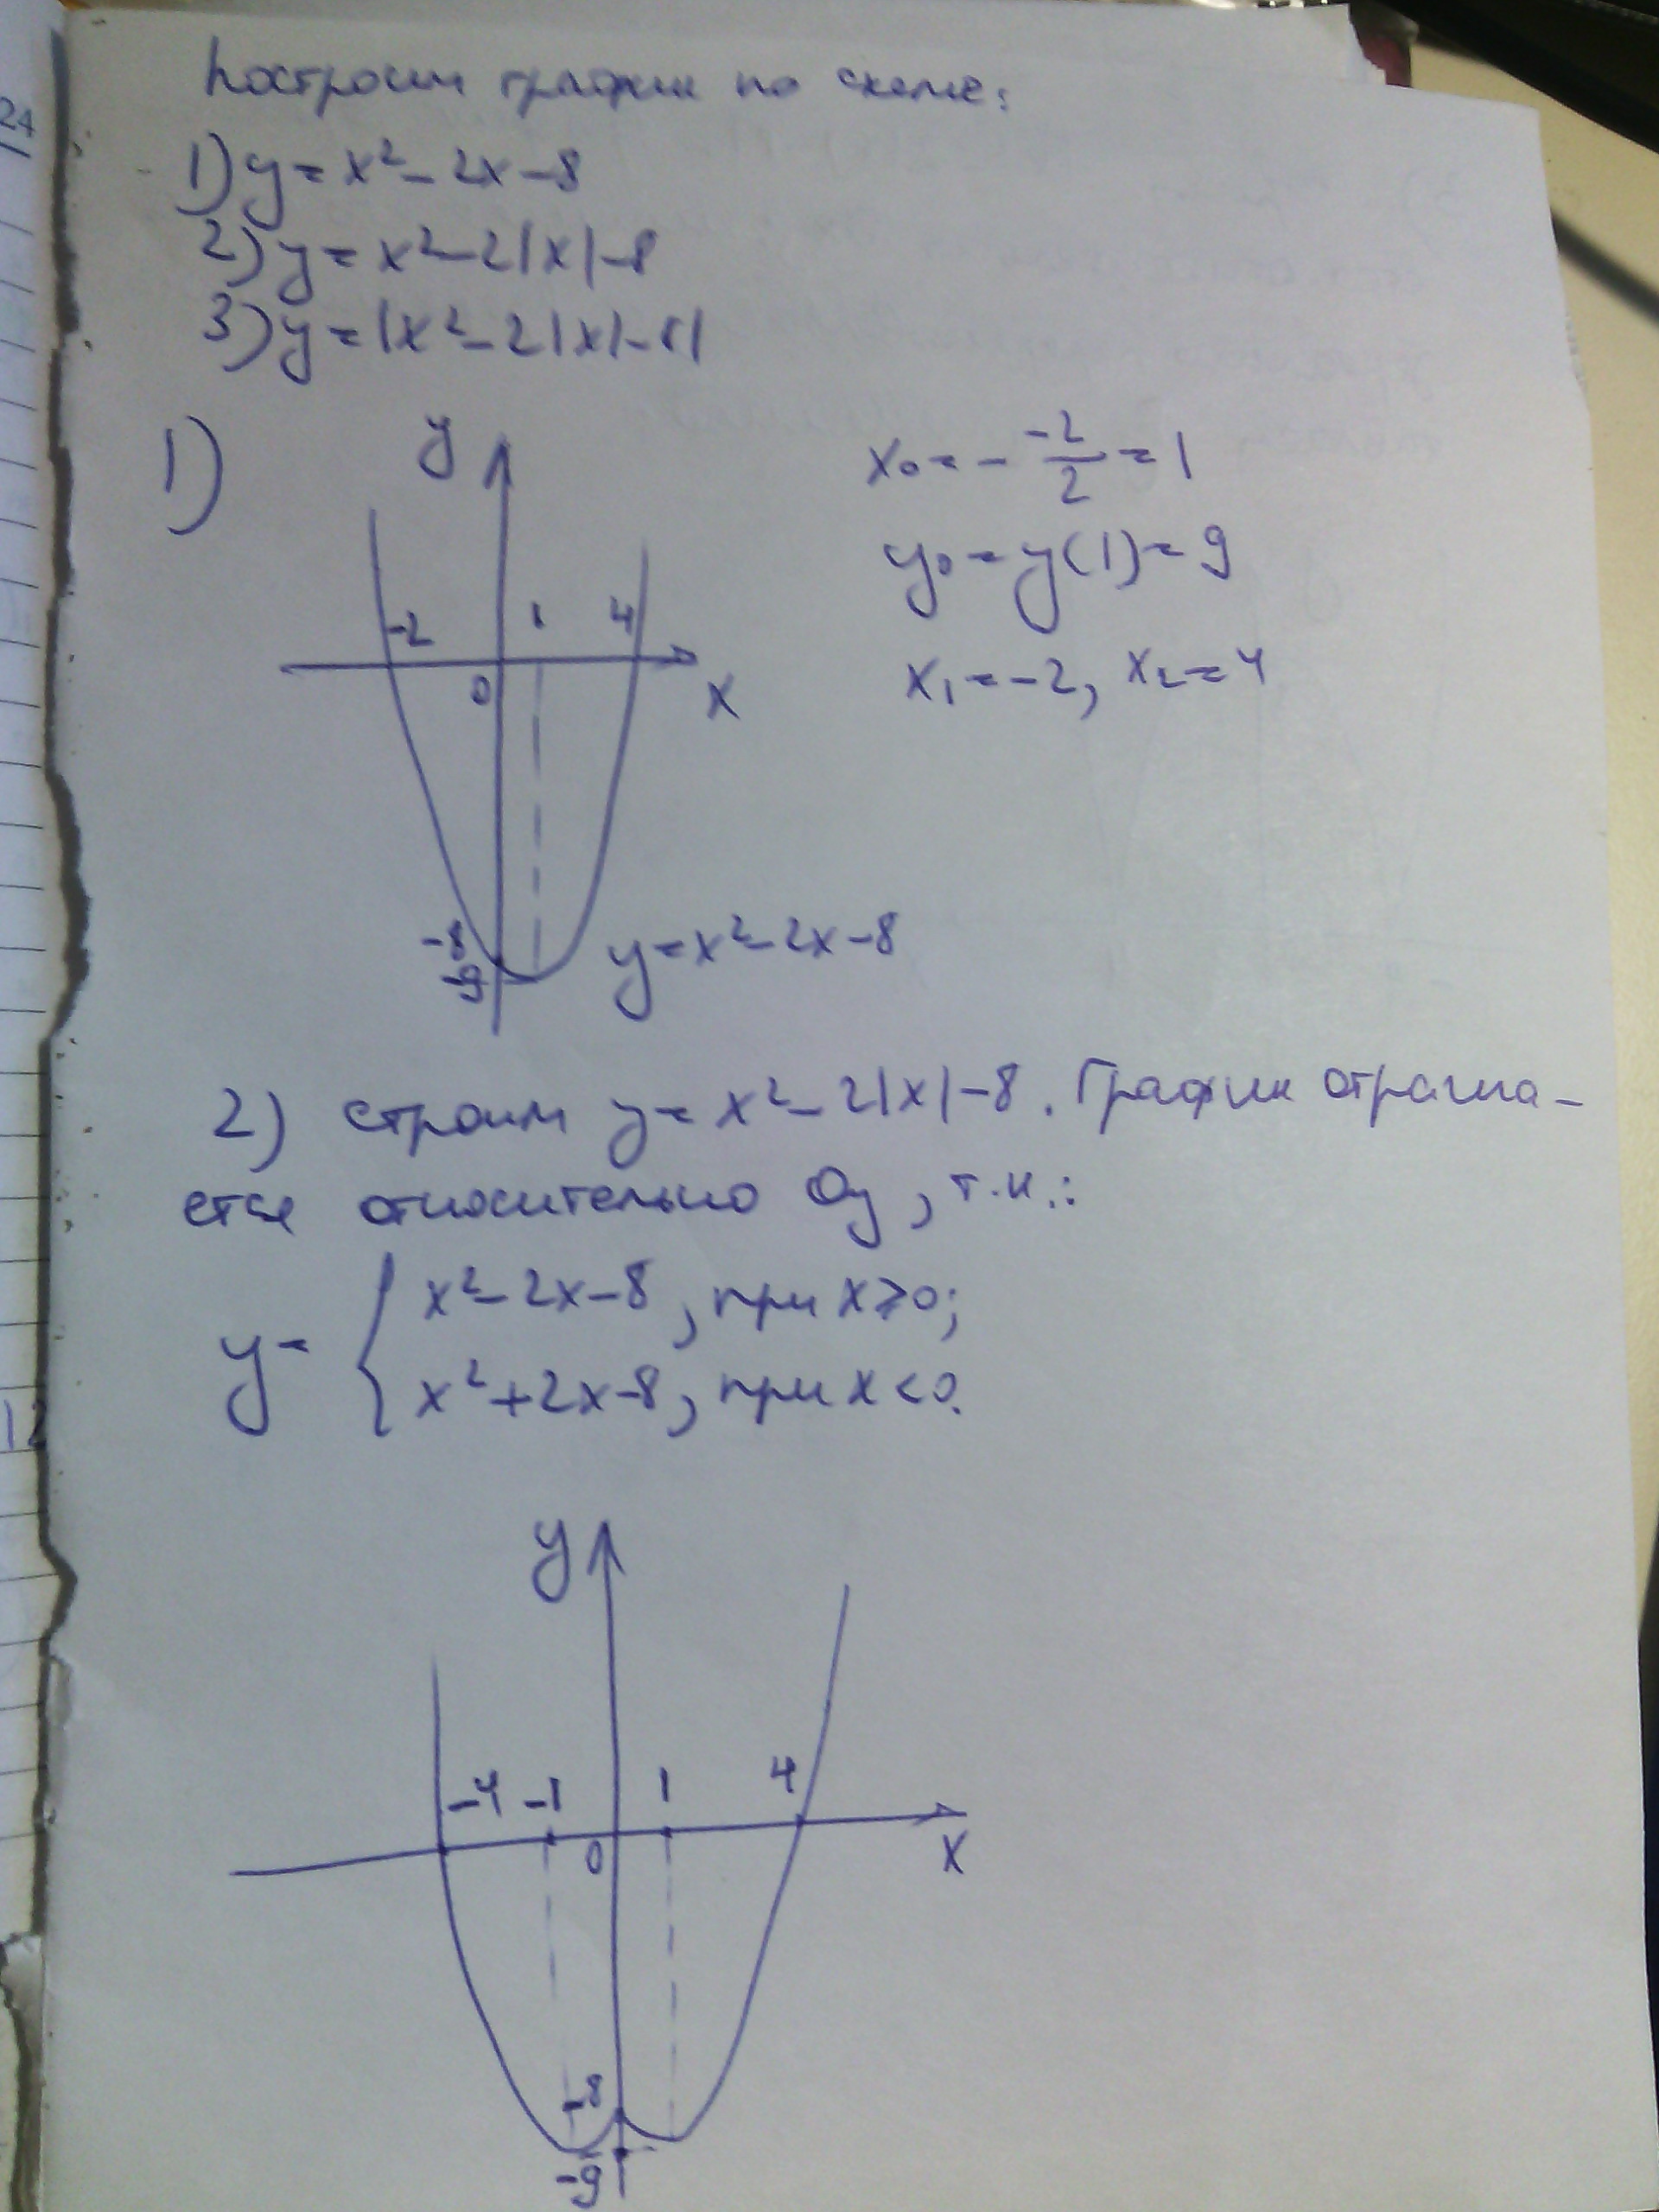 24
Построим график по схеме:
1) y = x² - 2x - 8
2) y = x² - 2|x| - 8
3) y = |x² - 2|x| - 8|
1)
y
x₀ = - -2/2 = 1
y₀ = y(1) = 9
-2 1 4
0 x
x₁ = -2, x₂ = 4
-8
-9
y = x² - 2x - 8
2) строим y = x² - 2|x| - 8. График отража-
ется относительно Oy, т.к.:
y = { x² - 2x - 8, при x ≥ 0;
x² + 2x - 8, при x < 0.
12
y
-4 -1 1 4
0 x
-8
-9